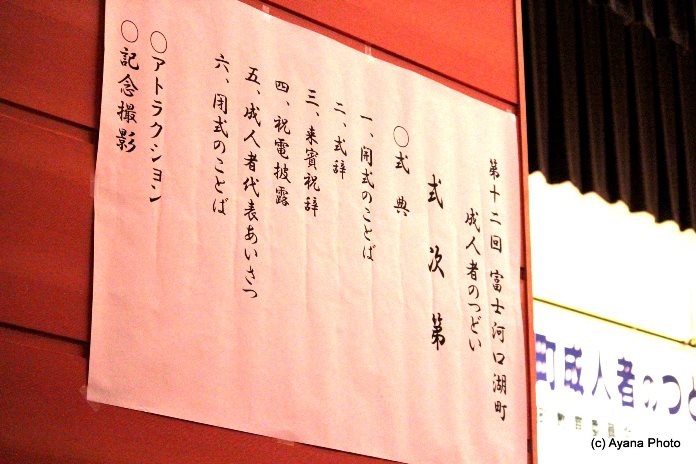 第十二回 富士河口湖町
成人者のつどい
式次第
○式典
一、開式のことば
二、式辞
三、来賓祝辞
四、祝電披露
五、成人者代表あいさつ
六、閉式のことば
○アトラクション
○記念撮影
町成人者のつど
(c) Ayana Photo